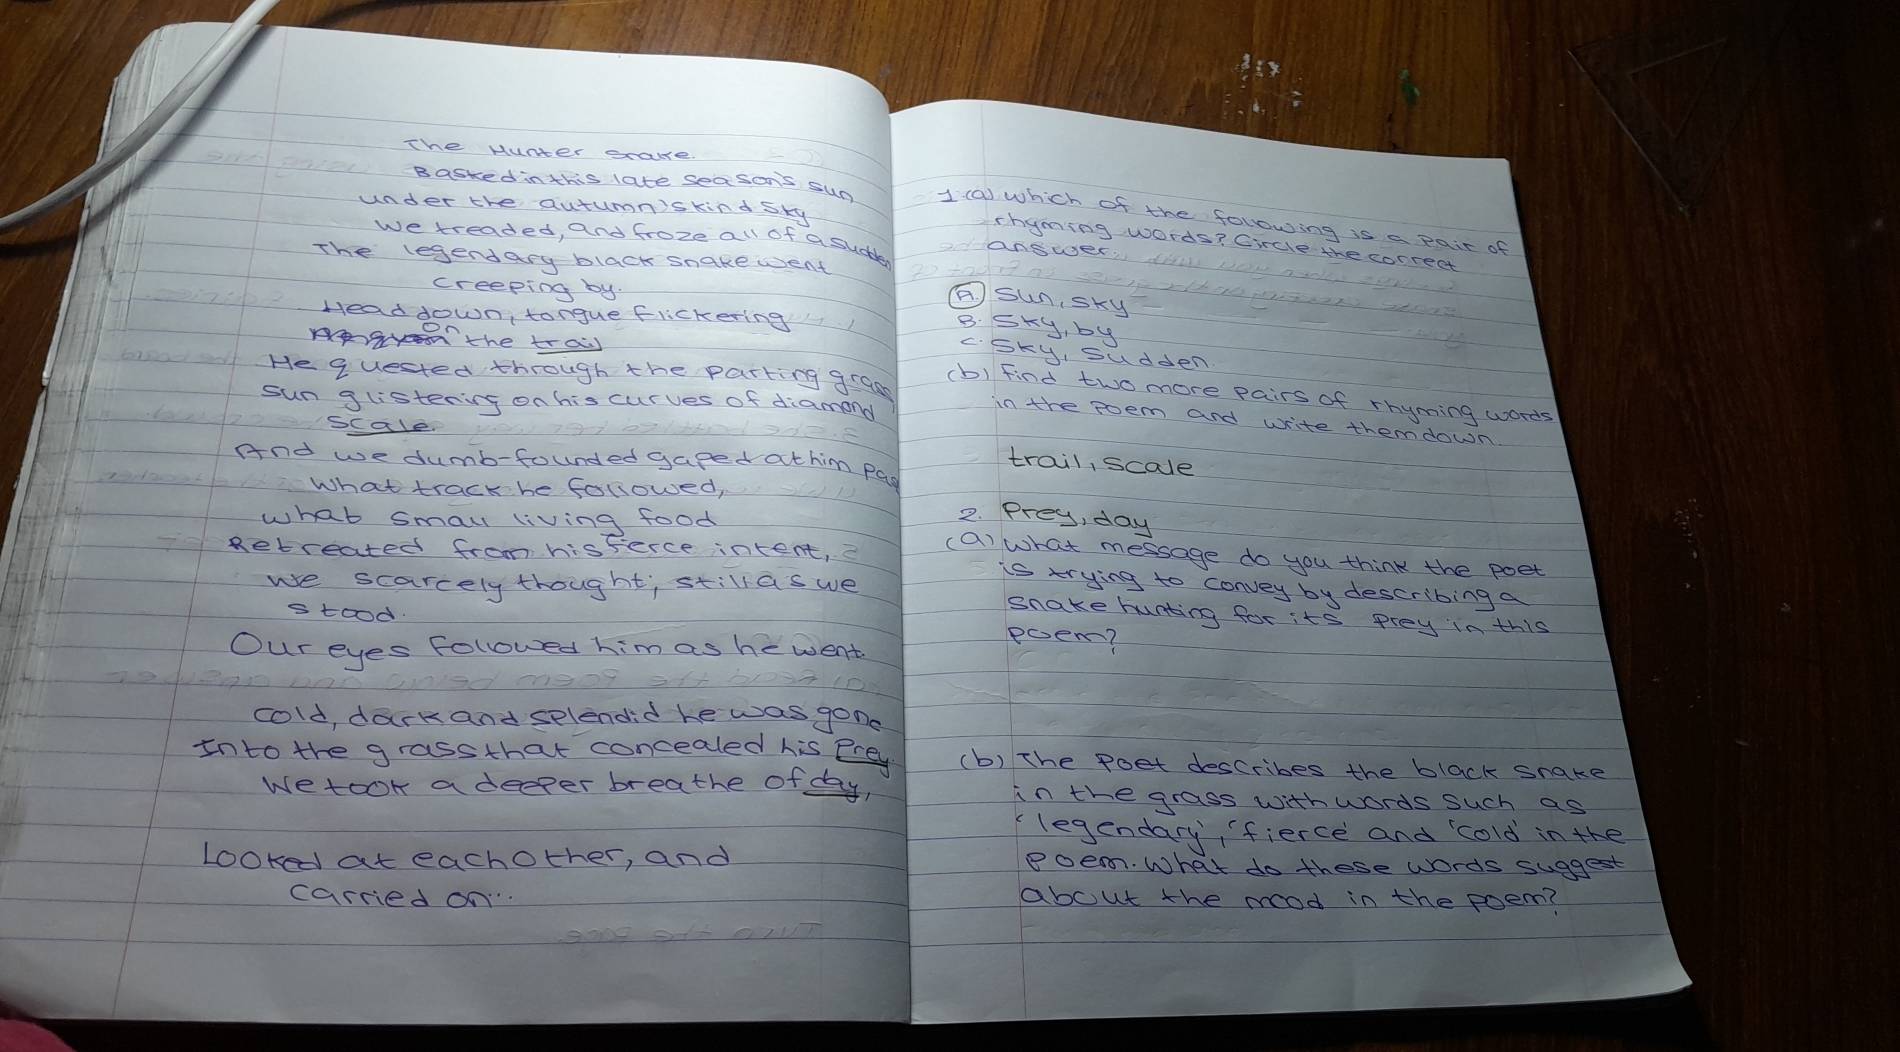 The Hunter snake.
Basked in this late season's sun,
under the autumn's kind sky
We treaded, and froze all of a sudden
The legendary black snake went
creeping by.
Head down, tongue flickering
on the trail
He quested through the parting grass,
sun glistering on his curves of diamond
scale.
And we dumb-founded gaped at him pass
What track he followed,
what small living food
Retreated from his fierce intent,
we scarcely thought; still as we
stood.
Our eyes followed him as he went.
cold, dark and splendid he was gone
Into the grass that concealed his prey.
We took a deeper breathe of day,
Looked at each other, and
carried on...
1.(a) which of the following is a pair of
rhyming words? Circle the correct
answer.
A. Sun, sky
B. Sky, by
C. Sky, Sudden.
(b) find two more pairs of rhyming words
in the poem and write them down.
trail, scale
2. Prey, day
(a) what message do you think the poet
is trying to convey by describing a
snake hunting for its prey in this
poem?
(b) The poet describes the black snake
in the grass with words such as
'legendary', 'fierce' and 'cold' in the
poem. What do these words suggest
about the mood in the poem?